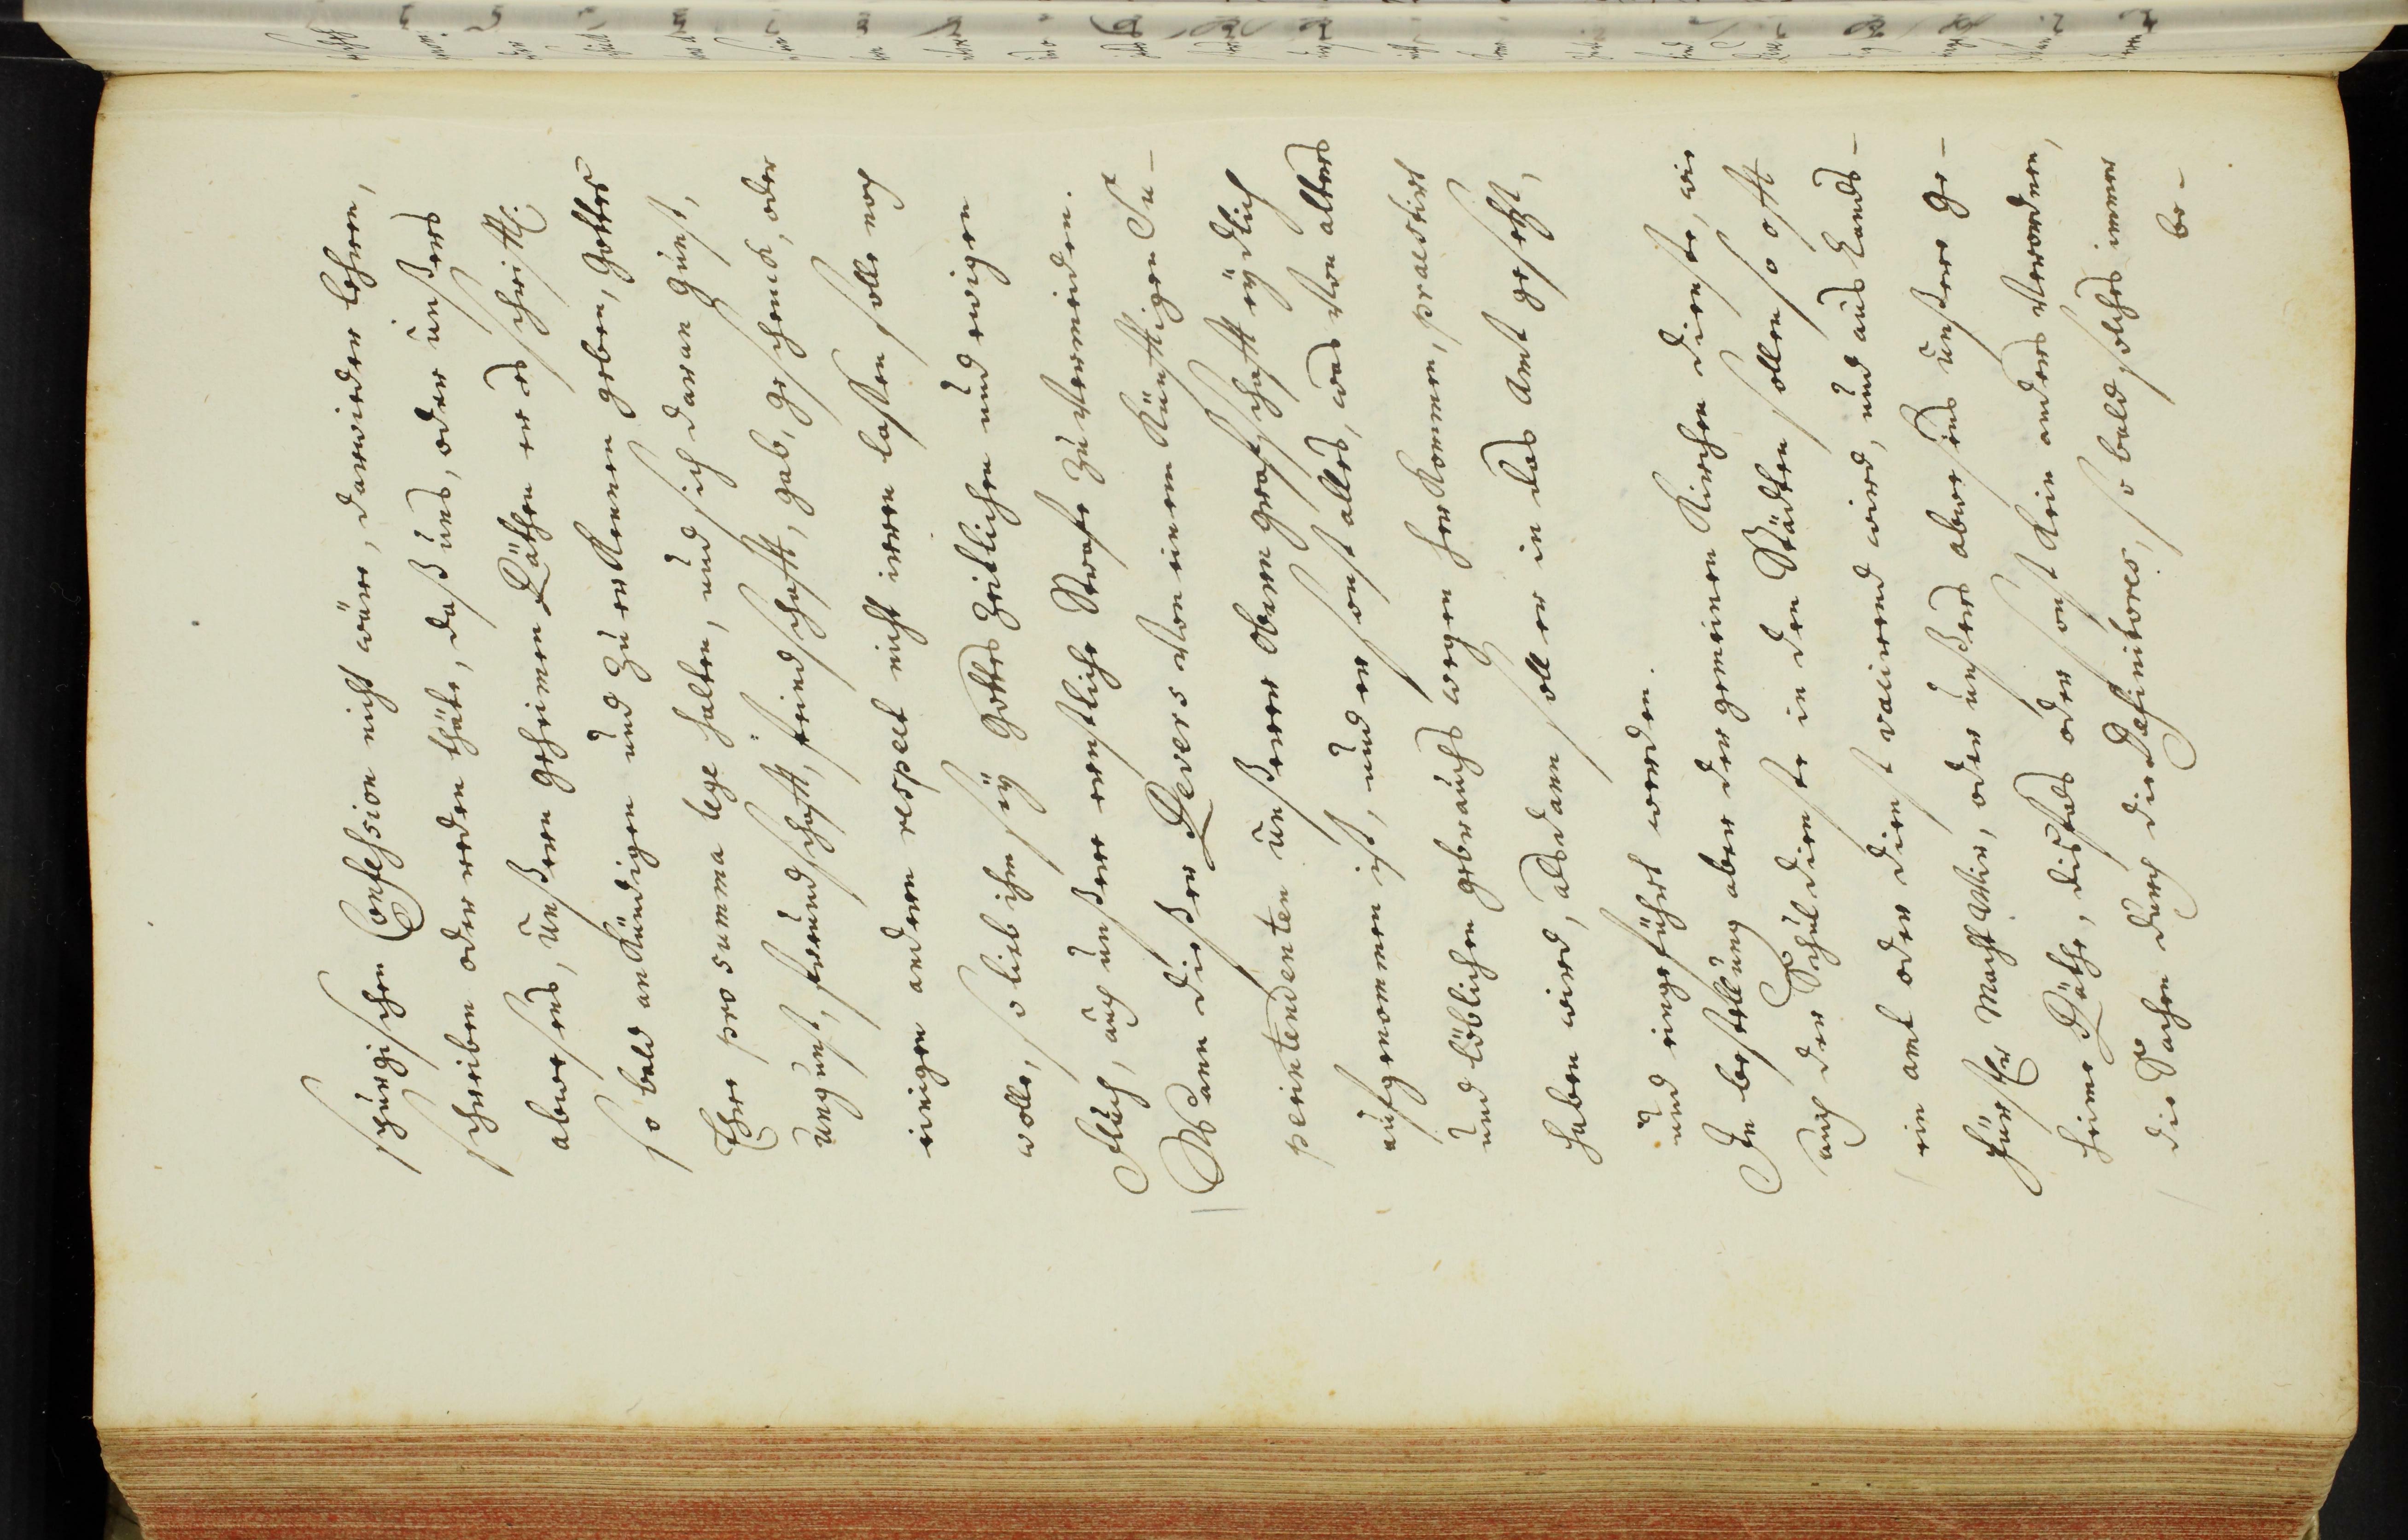 spurgischen Confession nicht wäre, darwieder lehren,
schreiben oder reden thäte, daß uns, oder unßers
abweßens, unßeren geheimen Räthen er es schrifftl:
so bald ankündigen und zu erkennen geben, Gottes
Ehre pro summa lege halten, und sich daran gunst,
ungunst, freundschafft, feindschafft, gab, geschenck, oder
einigen anderen respect nicht irren laßen solle noch
wolle, so lieb ihm sey Gottes zeitlichen und ewigen
Fluch, auch unßere ernstliche Strafe zu vermeiden.
Wann dießer Revers von einem künfftigen Su-
perintendenten unßerer Oberen Grafschafft eydlich
aufgenommen ist, und er sonst alles, was von alters
und löblichen gebrauchs wegen herkommen, praestirt
haben wird, alsdann soll er in das Amt gesetzt,
und eingeführt werden.
In bestellung aber der gemeinen Kirchen dienste, wie
auch der Schuldienste in den Städten sollen so offt
ein amt oder dienst vacirend wird, und aus Lands-
Fürstl. Macht Wir, oder unßers abweßens unßere Ge-
heime Räthe, disfals oder sonst kein anders verordnen,
die Sachen durch die Definitores, so bald solches immer
be-